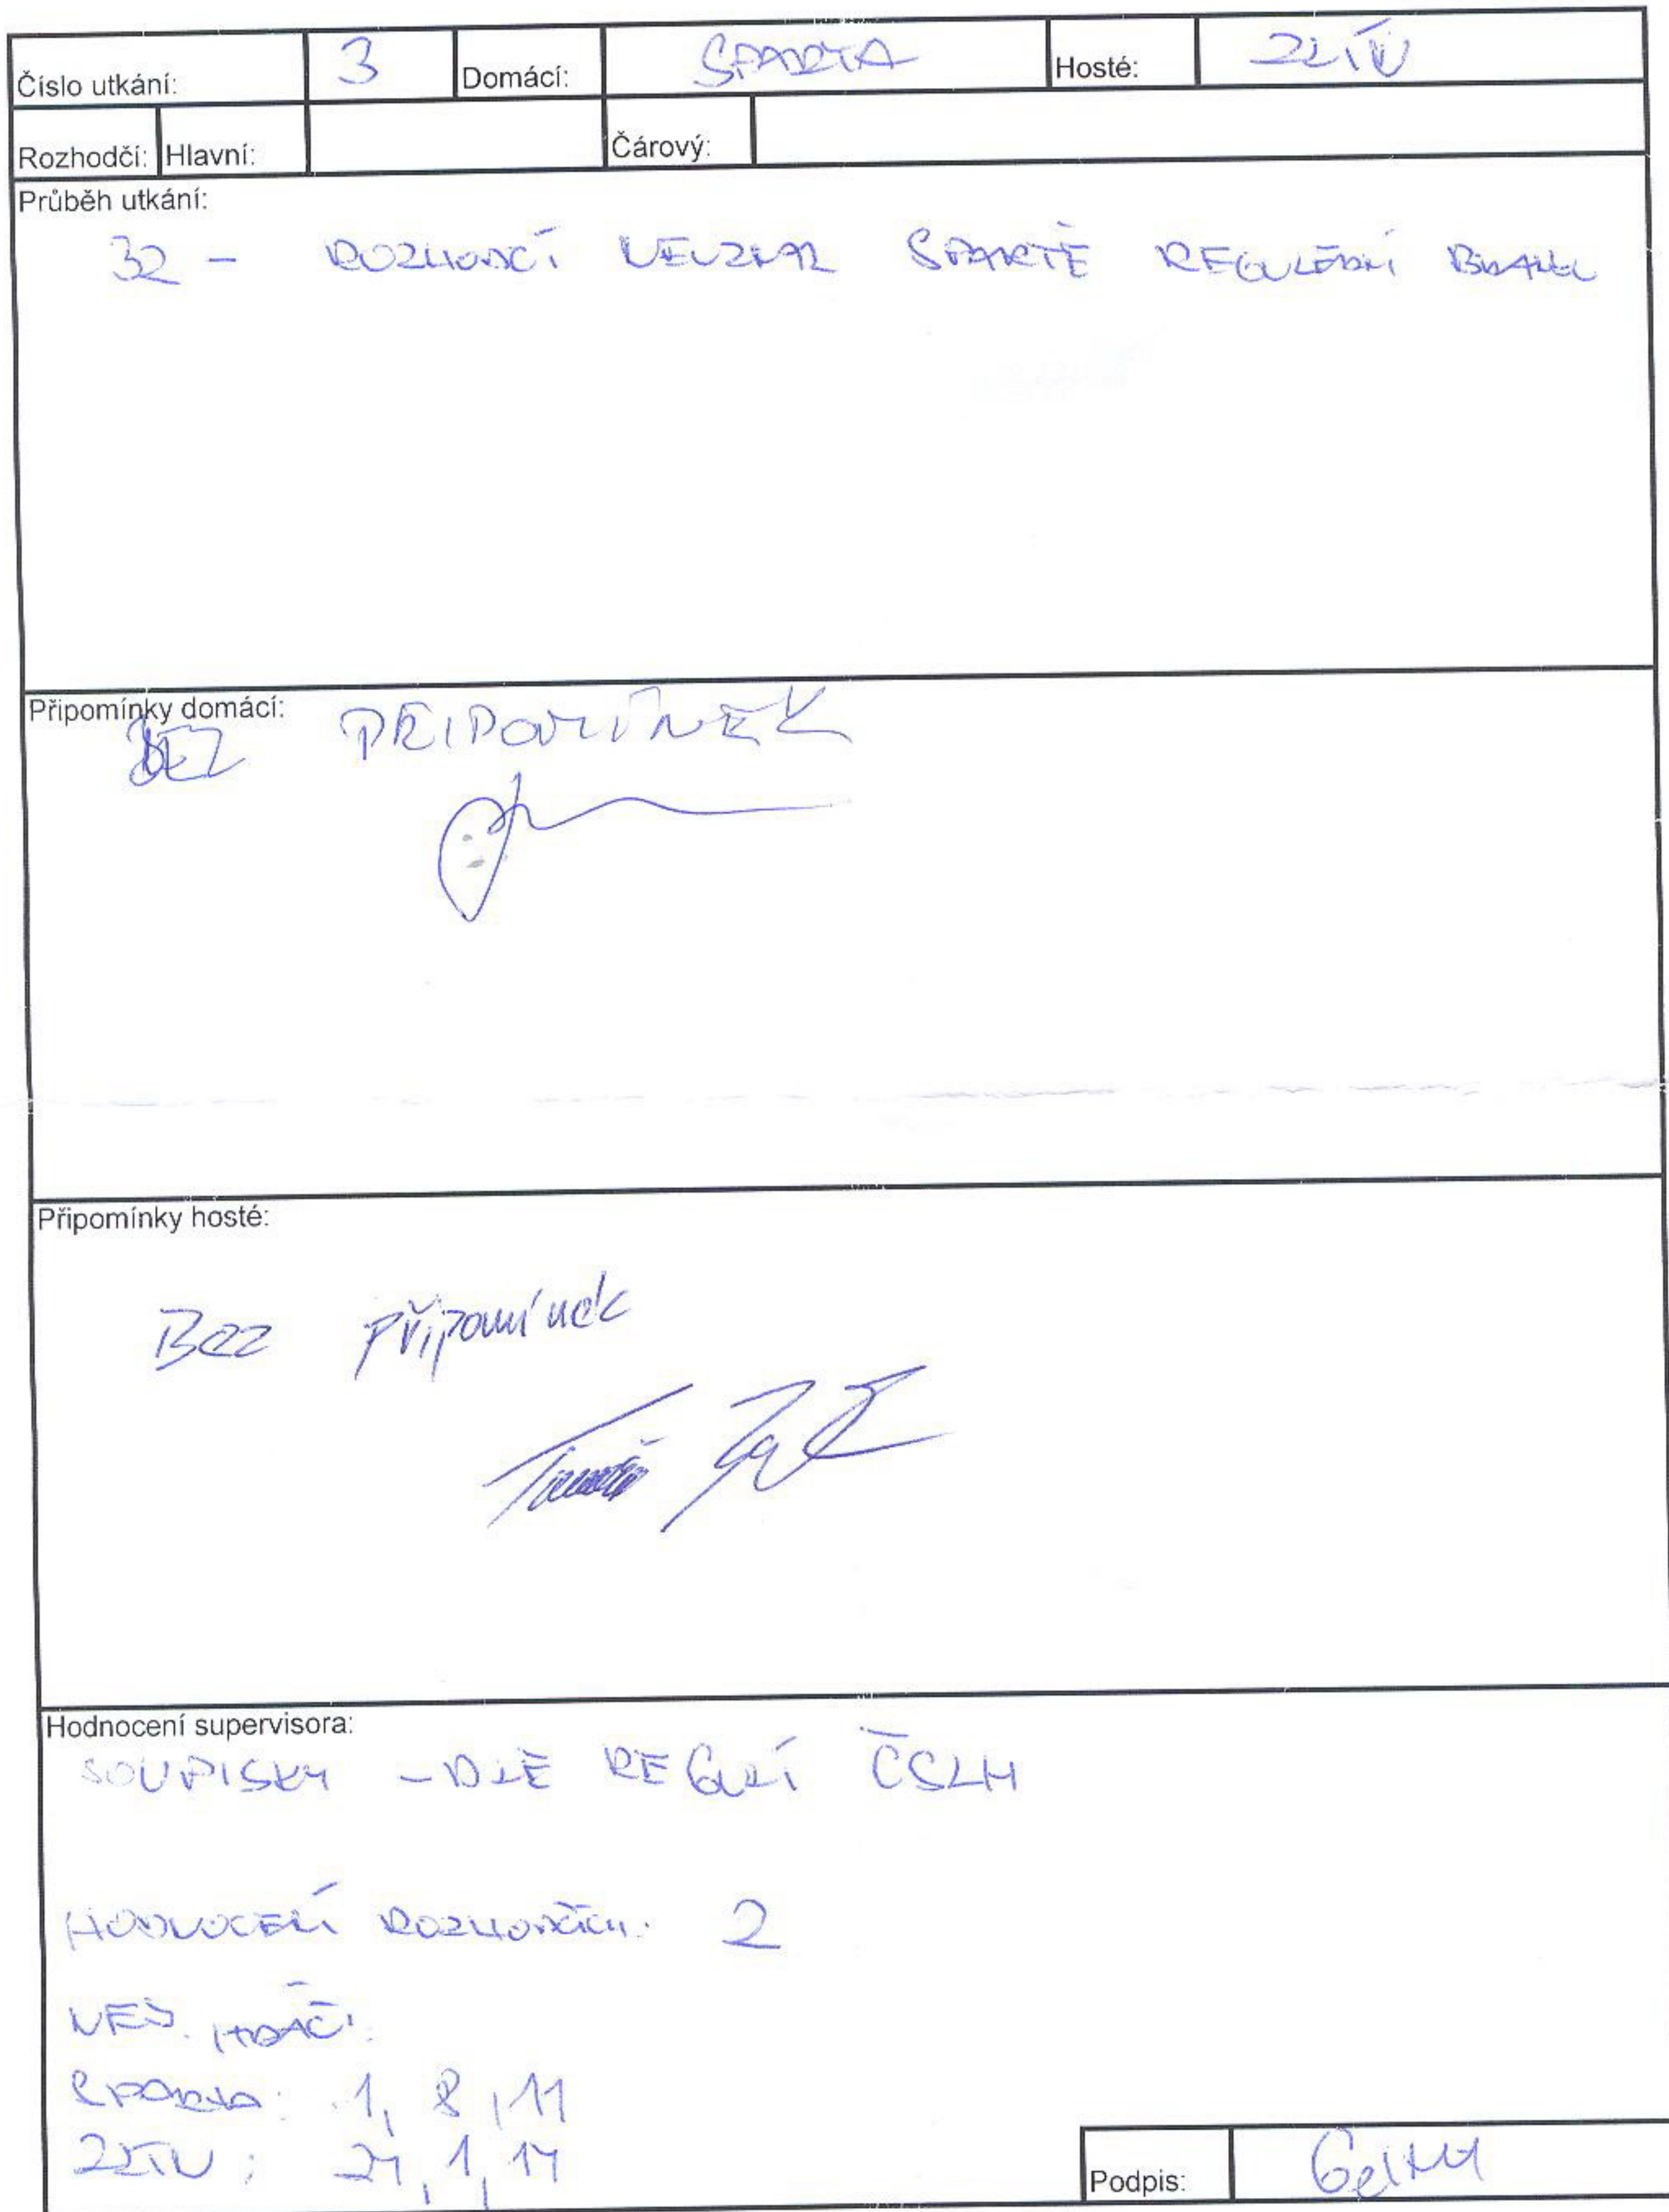 Číslo utkání: 3 Domácí: SPARTA Hosté: ZLÍN
Rozhodčí: Hlavní: Čárový:
Průběh utkání:
32 - ROZHODČÍ NEUZNAL SPARTĚ REGULÉRNÍ BRANKU
Připomínky domácí:
BEZ PŘIPOMÍNEK
Připomínky hosté:
Bez připomínek
Hodnocení supervisora:
SOUPISKY - DLE REGULÍ ČSLH
HODNOCENÍ ROZHODČÍCH: 2
NEJ. HRÁČI:
SPARTA: 1, 8, 11
ZLÍN: 24, 1, 14
Podpis: